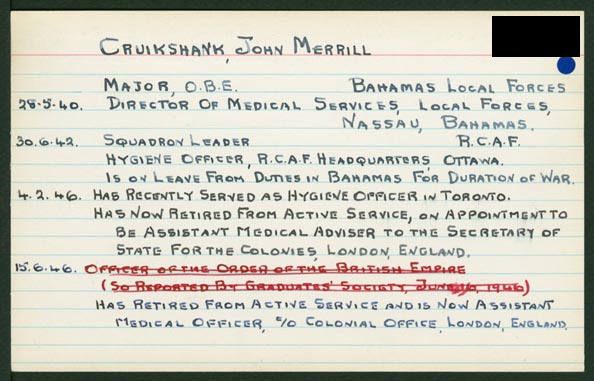 CRUIKSHANK, JOHN MERRILL
MAJOR, O.B.E. BAHAMAS LOCAL FORCES
28-5-40. DIRECTOR OF MEDICAL SERVICES, LOCAL FORCES,
NASSAU, BAHAMAS.
30.6.42. SQUADRON LEADER R.C.A.F.
HYGIENE OFFICER, R.C.A.F. HEADQUARTERS OTTAWA.
IS ON LEAVE FROM DUTIES IN BAHAMAS FOR DURATION OF WAR.
4.2.46. HAS RECENTLY SERVED AS HYGIENE OFFICER IN TORONTO.
HAS NOW RETIRED FROM ACTIVE SERVICE, ON APPOINTMENT TO
BE ASSISTANT MEDICAL ADVISER TO THE SECRETARY OF
STATE FOR THE COLONIES, LONDON, ENGLAND.
15.6.46. OFFICER OF THE ORDER OF THE BRITISH EMPIRE
(SO REPORTED BY GRADUATES' SOCIETY, JUNE 1946)
HAS RETIRED FROM ACTIVE SERVICE AND IS NOW ASSISTANT
MEDICAL OFFICER, c/o COLONIAL OFFICE, LONDON, ENGLAND.